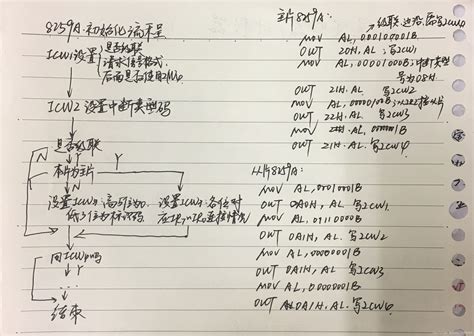 8259A 初始化流程
ICW1设置 是否级联
请求信号格式
后面是否使用ICW4
ICW2 设置中断类型码
是否级联
N Y
本片为主片
N Y
设置ICW3 高5位为0. 设置ICW3. 各位对
低3位为标识码 应IR0~IR7连接情况
用ICW4吗
Y
N
结束
主片8259A:
级联,边沿,需写ICW4
MOV AL, 00010001B
OUT 20H, AL. 写ICW1
中断类型
号为08H
OUT 21H. AL 写ICW2
MOV AL, 00000100B
写ICW3
写ICW4
从片8259A:
MOV AL, 00010001B
OUT 0A0H, AL. 写ICW1
MOV AL, 01110000B
OUT 0A1H, AL. 写ICW2
MOV AL,
OUT 0A1H, AL. 写ICW3
MOV AL,
OUT 0A1H, AL. 写ICW4